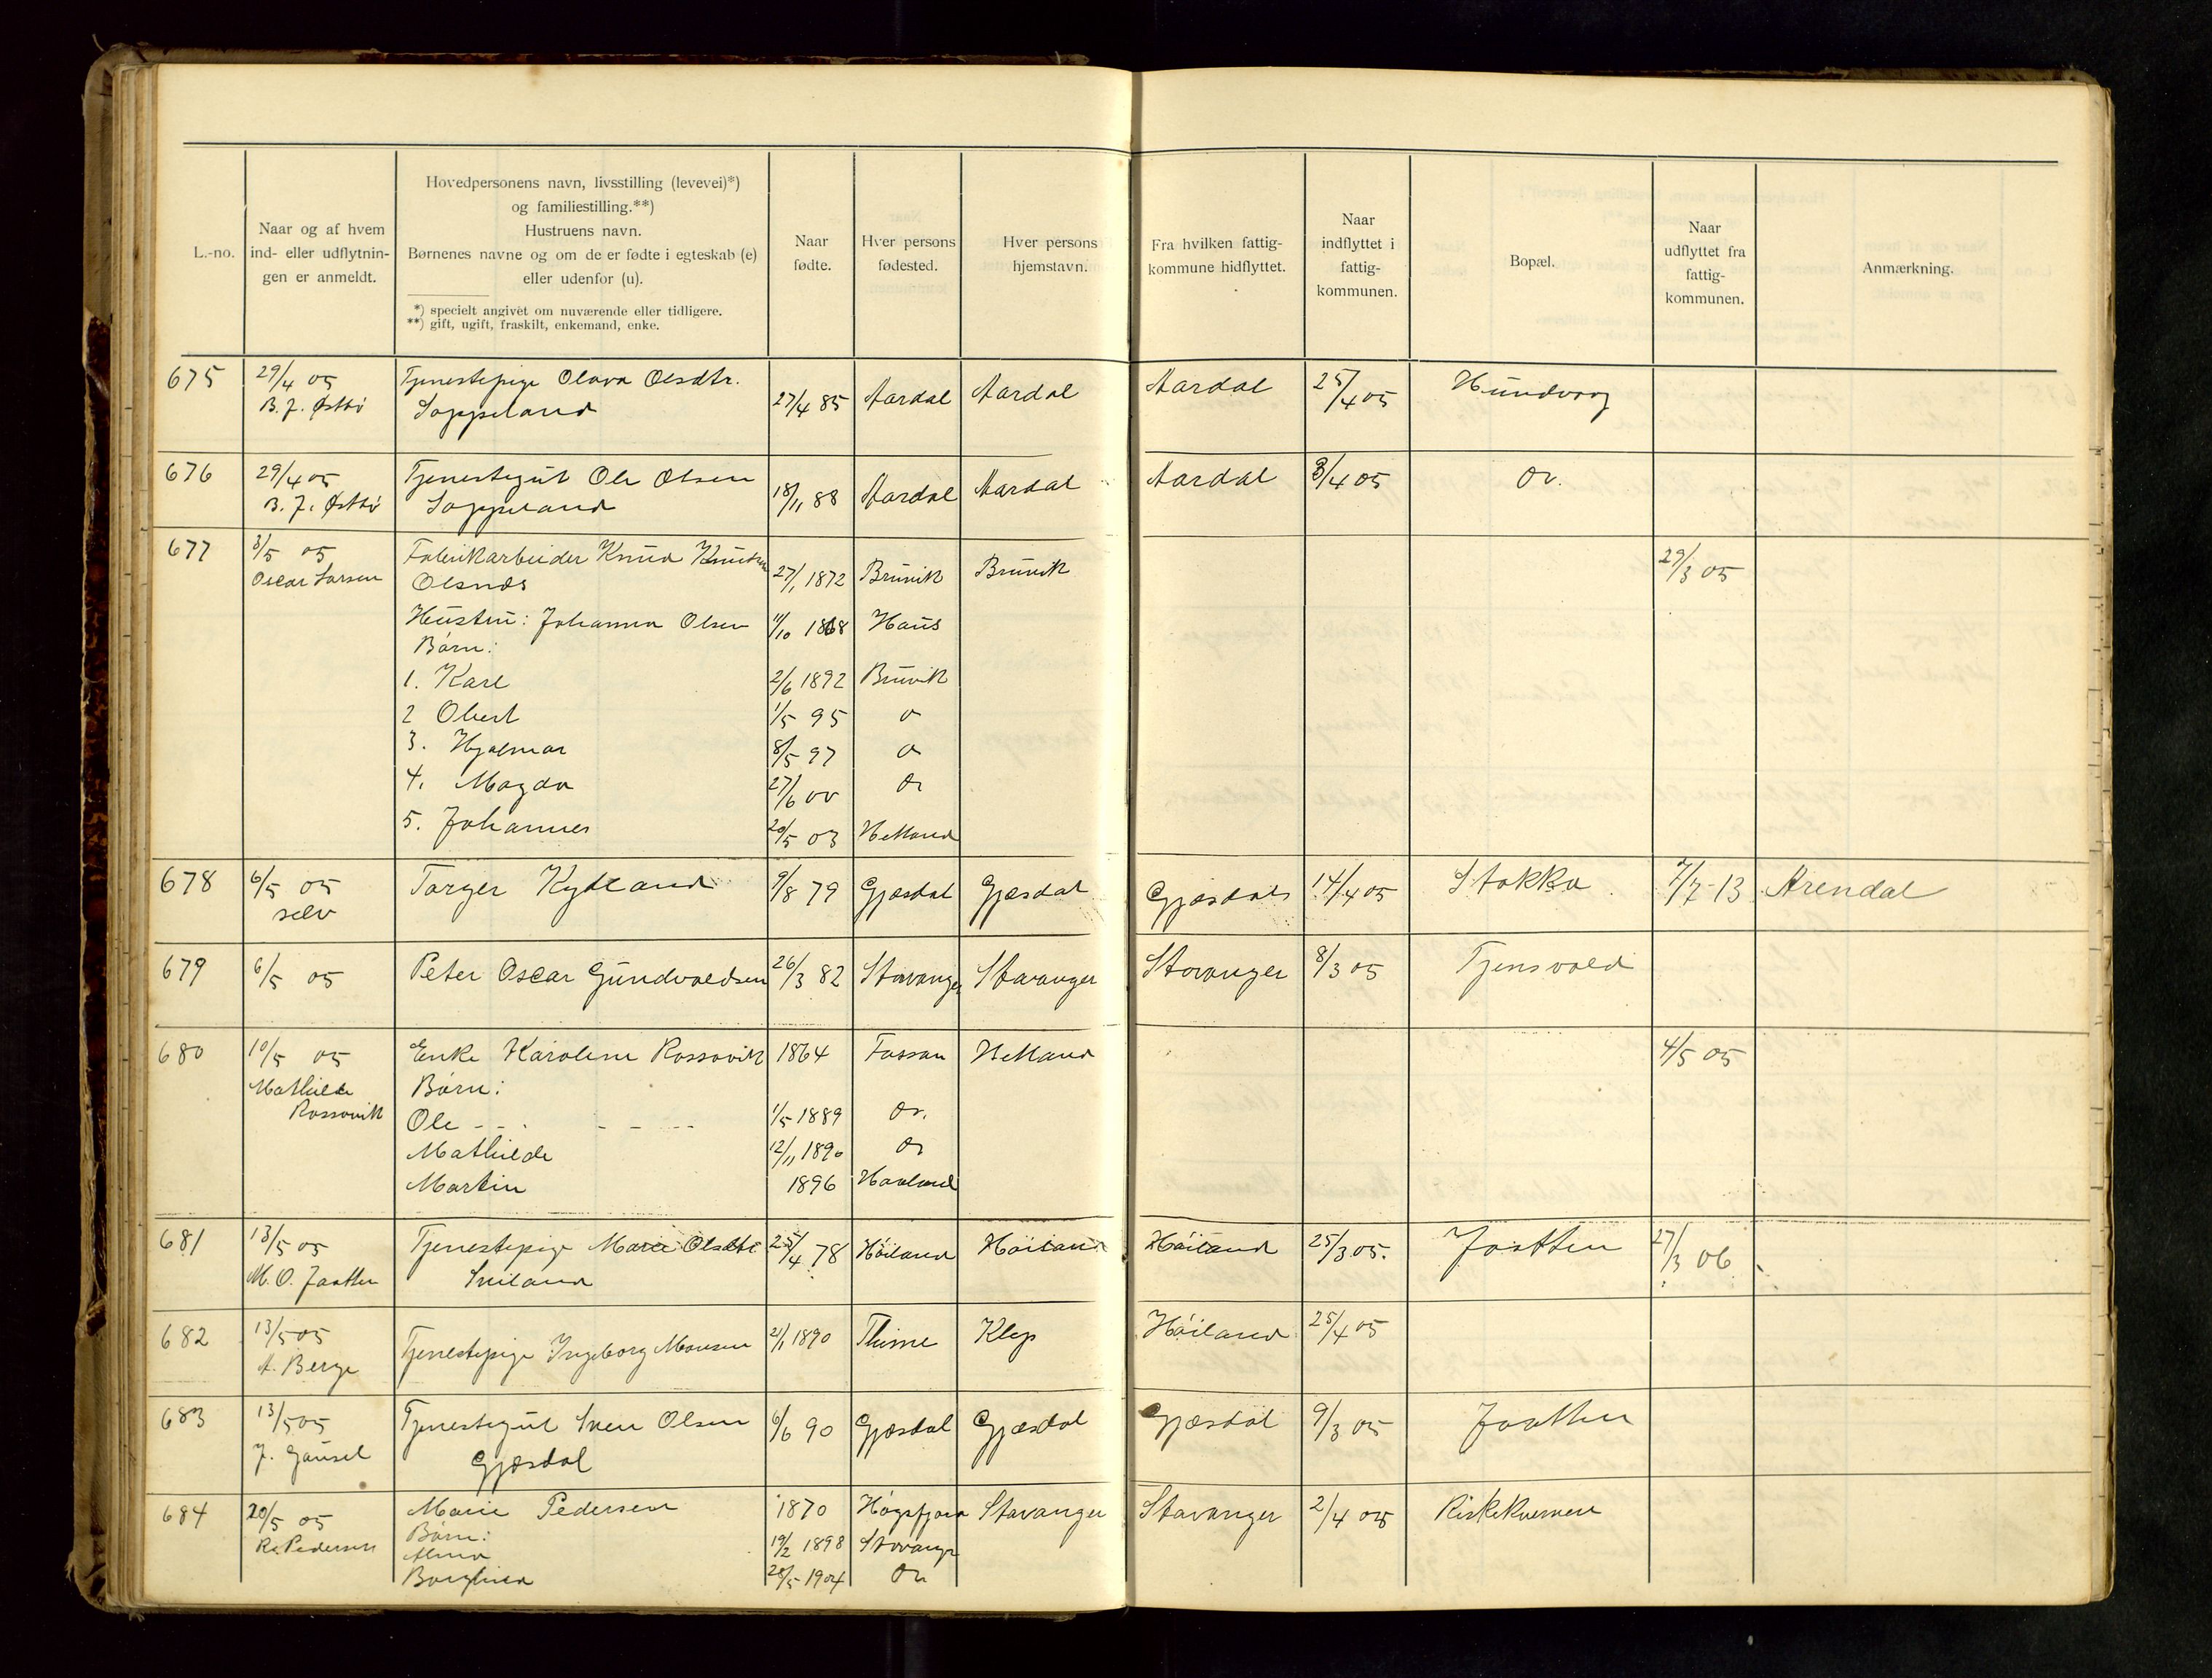 L.-no.
Naar og af hvem
ind- eller udflytnin-
gen er anmeldt.
Hovedpersonens navn, livsstilling (levevei)*)
og familiestilling.**)
Hustruens navn.
Børnenes navne og om de er fødte i egteskab (e)
eller udenfor (u).
*) specielt angivet om nuværende eller tidligere.
**) gift, ugift, fraskilt, enkemand, enke.
Naar
fødte.
Hver persons
fødested.
Hver persons
hjemstavn.
Fra hvilken fattig-
kommune hidflyttet.
Naar
indflyttet i
fattig-
kommunen.
Bopæl.
Naar
udflyttet fra
fattig-
kommunen.
Anmærkning.
675 29/4 05 Tjenestepige Olava Olsdtr. 27/4 85 Aardal Aardal Aardal 25/4 05 Hundvaag
B. J. Østbø Soppeland
676 29/4 05 Tjenestegut Ole Olsen 18/11 88 Aardal Aardal Aardal 3/4 05 do.
B. J. Østbø Soppeland
677 3/5 05 Fabrikarbeider Knud Knutsen 27/1 1872 Bruvik Bruvik 29/3 05
Oscar Larsen Olsnes
Hustru: Johanna Olsen 11/10 1868 Haus
Børn:
1. Karl 2/6 1892 Bruvik
2 Obert 1/5 95 do
3. Hjalmar 8/5 97 do
4. Magda 27/6 00 do
5. Johannes 20/5 03 Hetland
678 6/5 05 Torger Kydland 9/8 79 Gjæsdal Gjæsdal Gjæsdal 14/4 05 Stokka 7/7-13 Arendal
selv
679 6/5 05 Peter Oscar Gundvaldsen 26/3 82 Stavanger Stavanger Stavanger 8/3 05 Tjensvold
680 10/5 05 Enke Karoline Rossavik 1864 Fossan Hetland 4/5 05
Mathilde Børn:
Rossavik
Ole 1/5 1889 do.
Mathilde 12/11 1890 do
Martin 1896 Haaland
681 13/5 05 Tjenestepige Marie Olsdtr 25/4 78 Høiland Høiland Høiland 25/3 05. Jaatten 27/3 06
M. O. Jaatten Sviland
682 13/5 05 Tjenestepige Ingeborg Monsen 21/1 1890 Thime Klep Høiland 25/4 05
A. Berge
683 13/5 05 Tjenestegut Sven Olsen 6/6 90 Gjæsdal Gjæsdal Gjæsdal 9/3 05 Jaatten
J. Gausel Gjæsdal
684 20/5 05 Marie Pedersen 1870 Høgsfjord Stavanger Stavanger 2/4 05 Riskekvernen
R. Pedersen Børn:
Alma 19/2 1898 Stavanger
Borghild 28/5 1904 do